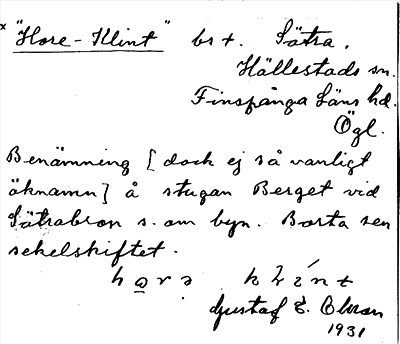 x "Hore-Klint" bst. Sätra,
Hällestads sn.
Finspånga Läns hd.
Ögl.
Benämning [dock ej så vanligt
öknamn] å stugan Berget vid
Sätrabron s. om byn. Borta sen
sekelskiftet.
Gustaf E. Olsson
1931